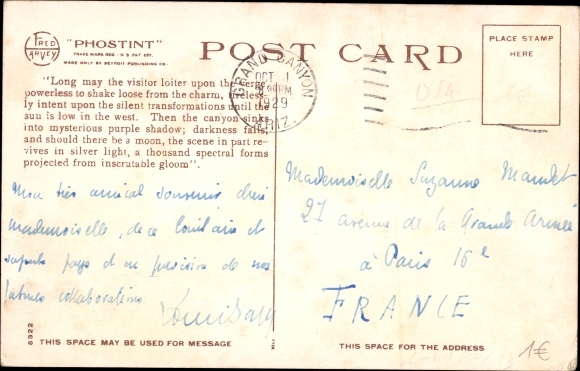 FRED
HARVEY
"PHOSTINT"
TRADE MARK REG. U S PAT OFF.
MADE ONLY BY DETROIT PUBLISHING CO.
POST CARD
PLACE STAMP
HERE
"Long may the visitor loiter upon the verge,
powerless to shake loose from the charm, tireless-
ly intent upon the silent transformations until the
sun is low in the west. Then the canyon sinks
into mysterious purple shadow; darkness falls,
and should there be a moon, the scene in part re-
vives in silver light, a thousand spectral forms
projected from inscrutable gloom".
GRAND CANYON
OCT 1
PM
1929
ARIZ.
USA
Mon très amical souvenir, chère
mademoiselle, de ce lointain et
superbe pays et en prévision de nos
futures collaborations
Mademoiselle Suzanne
27 avenue de la Grande Armée
à Paris 16e
FRANCE
6322
THIS SPACE MAY BE USED FOR MESSAGE
THIS SPACE FOR THE ADDRESS
1€